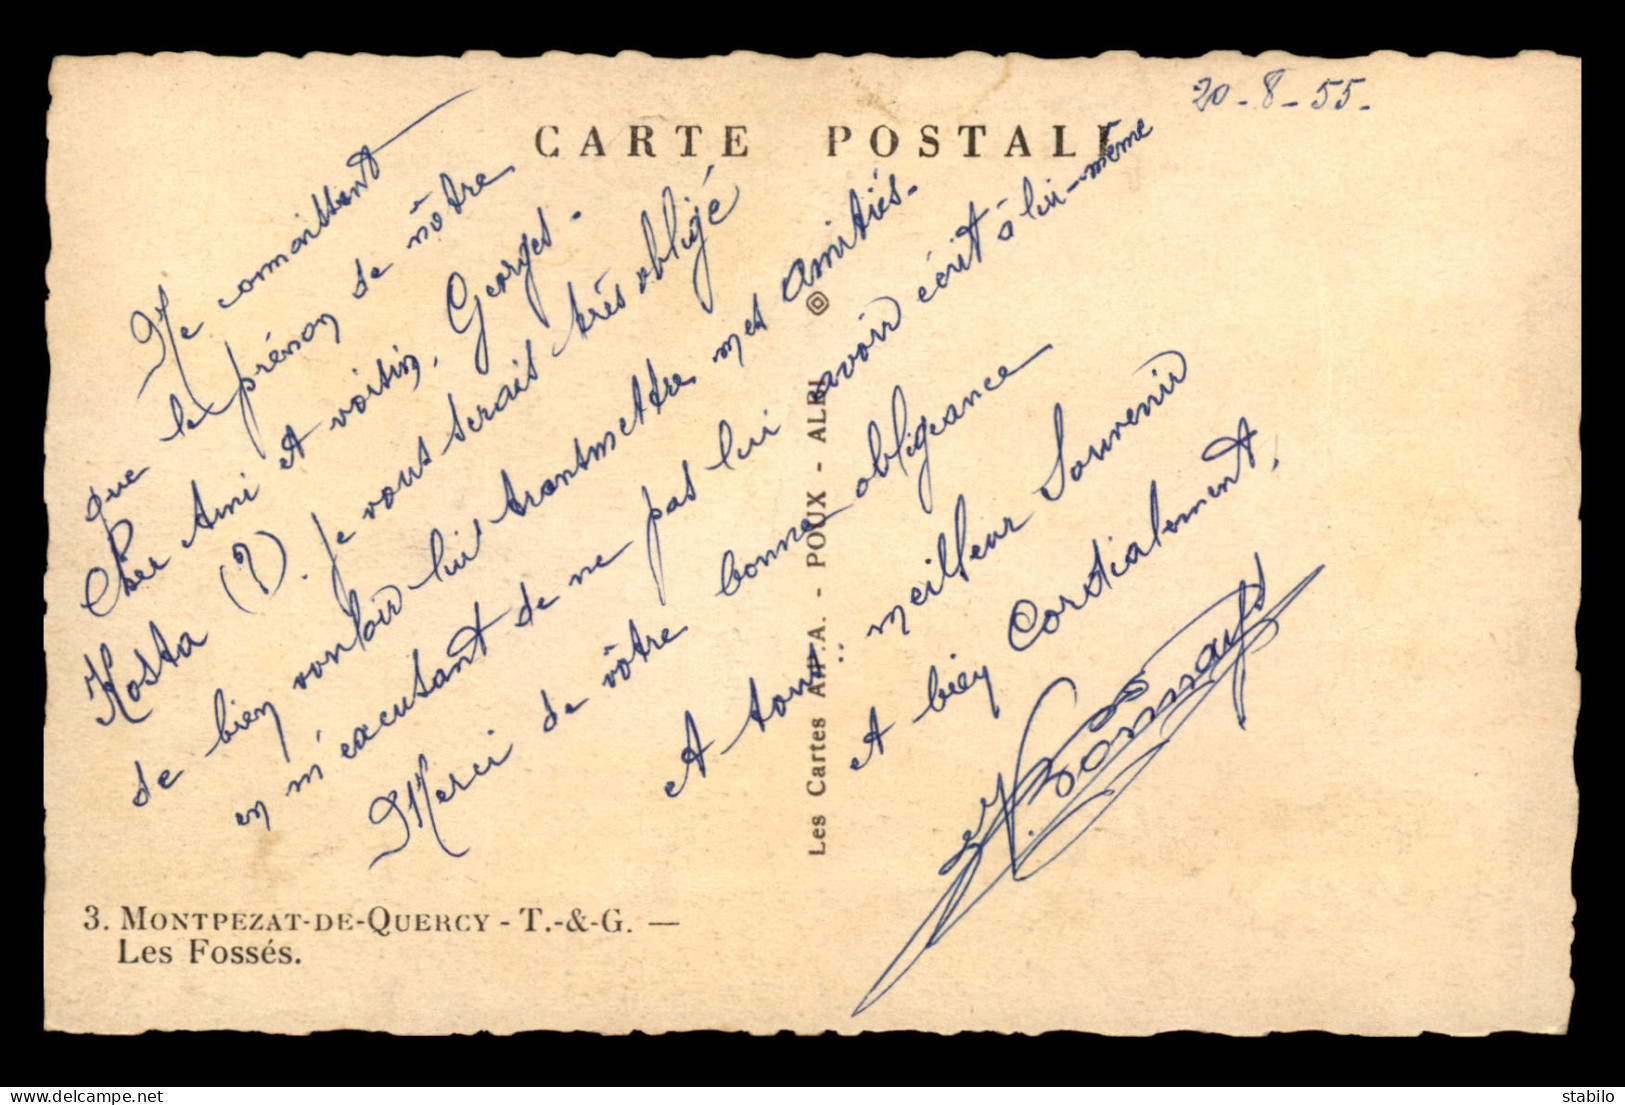 20-8-55-
CARTE POSTALE
Ne connaissant
que le prénom de nôtre
Cher Ami et voisin, Georges-
Kosta (?). je vous serais très obligé
de bien vouloir lui transmettre mes amitiés-
en m'excusant de ne pas lui avoir écrit à lui-même
Merci de vôtre bonne obligeance
A tous : meilleur Souvenir
et bien Cordialement,
Les Cartes A.P.A. - POUX - ALBI
3. MONTPEZAT-DE-QUERCY - T.-&-G. —
Les Fossés.
delcampe.net
stabilo